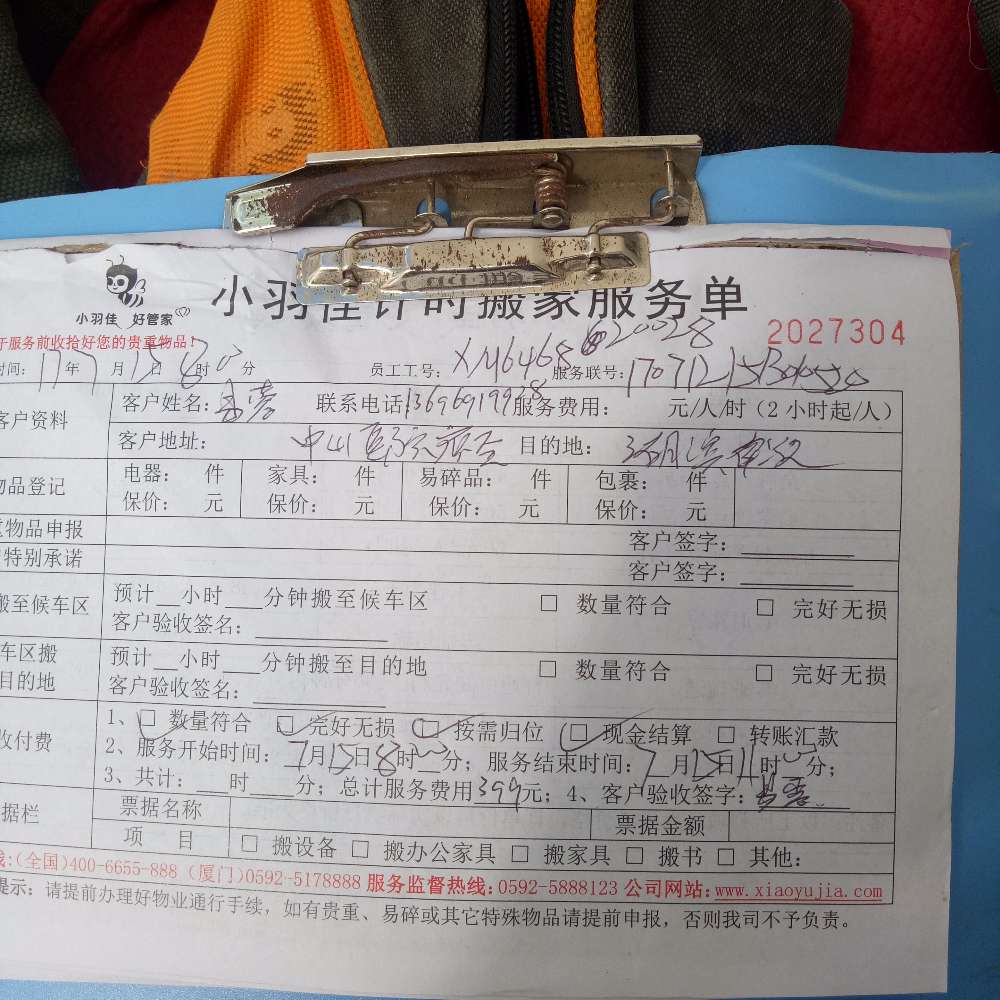 小羽佳 好管家
小羽佳计时搬家服务单
2027304
于服务前收拾好您的贵重物品!
时间: 17年7月15日8时00分 员工工号: XM6468 620028 服务联号:
客户资料 客户姓名: 联系电话: 服务费用: 元/人/时 (2小时起/人)
客户地址: 中山 目的地:
物品登记 电器: 件 家具: 件 易碎品: 件 包裹: 件
保价: 元 保价: 元 保价: 元 保价: 元
物品申报 客户签字:
特别承诺 客户签字:
搬至候车区 预计__小时___分钟搬至候车区 □ 数量符合 □ 完好无损
客户验收签名:
车区搬目的地 预计__小时___分钟搬至目的地 □ 数量符合 □ 完好无损
客户验收签名:
收付费 1、□ 数量符合 □ 完好无损 □ 按需归位 □ 现金结算 □ 转账汇款
2、服务开始时间: 7月15日8时00分; 服务结束时间: 7月15日11时00分;
3、共计: 时 分; 总计服务费用399元; 4、客户验收签字:
据栏 票据名称 票据金额
项 目 □ 搬设备 □ 搬办公家具 □ 搬家具 □ 搬书 □ 其他:
线:(全国)400-6655-888 (厦门)0592-5178888 服务监督热线: 0592-5888123 公司网站: www.xiaoyujia.com
提示: 请提前办理好物业通行手续, 如有贵重、易碎或其它特殊物品请提前申报, 否则我司不予负责。